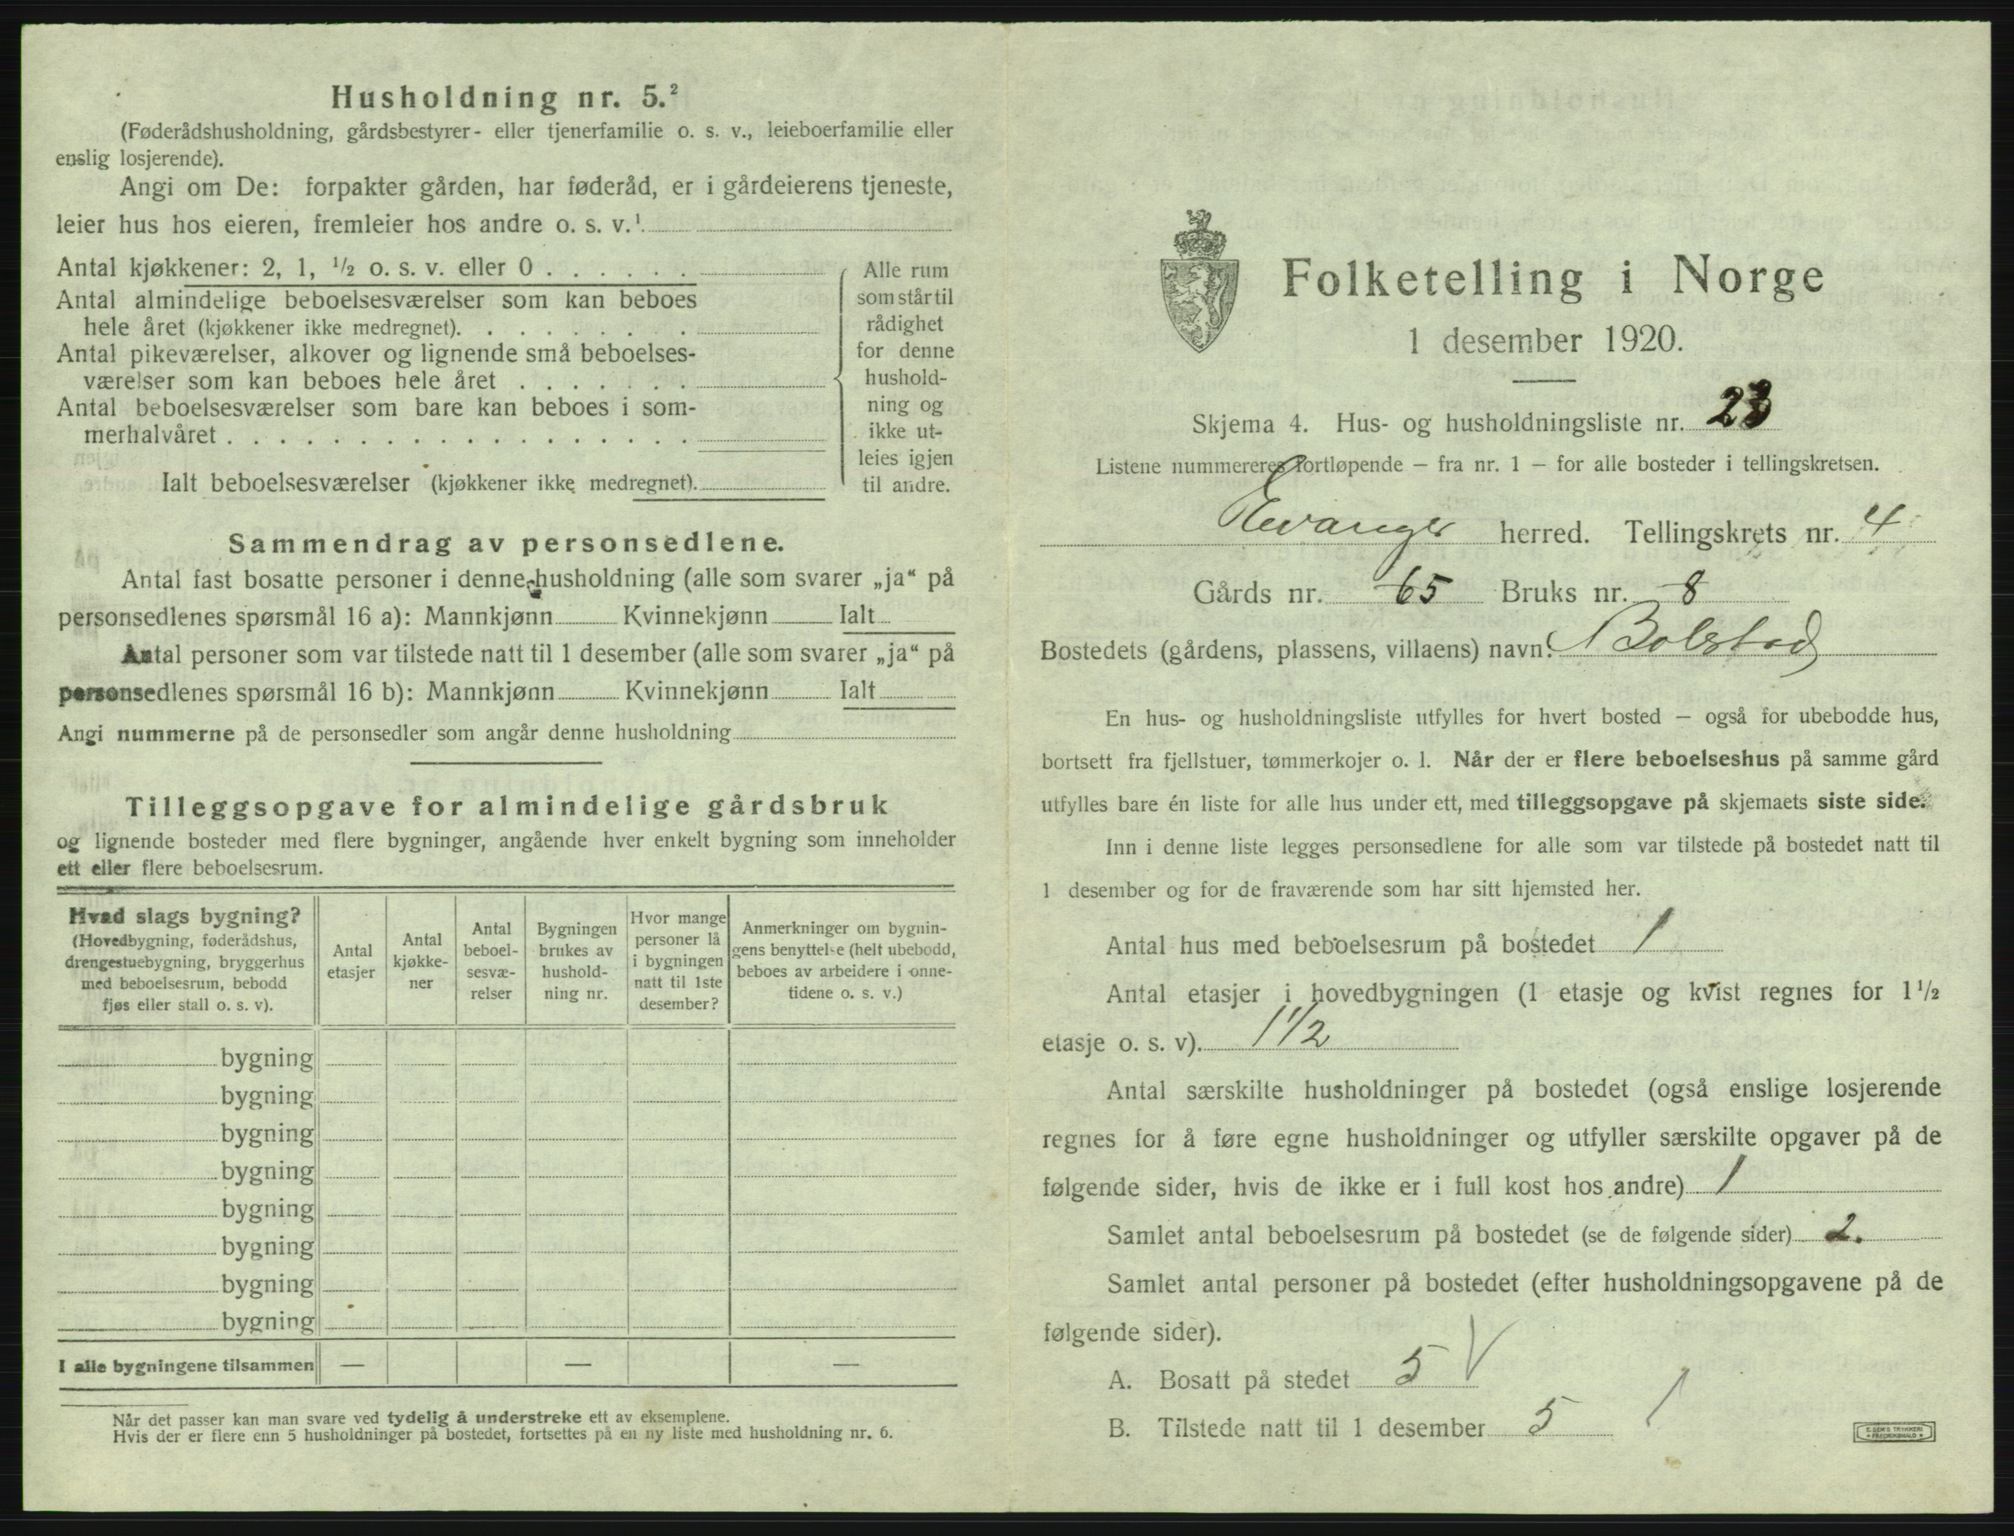 Husholdning nr. 5.²
(Føderådshusholdning, gårdsbestyrer- eller tjenerfamilie o. s. v., leieboerfamilie eller
enslig losjerende).
Angi om De: forpakter gården, har føderåd, er i gårdeierens tjeneste,
leier hus hos eieren, fremleier hos andre o. s. v.¹
Antal kjøkkener: 2, 1, ½ o. s. v. eller 0
Antal almindelige beboelsesværelser som kan beboes
hele året (kjøkkener ikke medregnet).
Antal pikeværelser, alkover og lignende små beboelses-
værelser som kan beboes hele året
Antal beboelsesværelser som bare kan beboes i som-
merhalvåret
Ialt beboelsesværelser (kjøkkener ikke medregnet).
Alle rum
som står til
rådighet
for denne
hushold-
ning og
ikke ut-
leies igjen
til andre.
Sammendrag av personsedlene.
Antal fast bosatte personer i denne husholdning (alle som svarer „ja“ på
personsedlenes spørsmål 16 a): Mannkjønn Kvinnekjønn Ialt
Antal personer som var tilstede natt til 1 desember (alle som svarer „ja“ på
personsedlenes spørsmål 16 b): Mannkjønn Kvinnekjønn Ialt
Angi nummerne på de personsedler som angår denne husholdning
Tilleggsopgave for almindelige gårdsbruk
og lignende bosteder med flere bygninger, angående hver enkelt bygning som inneholder
ett eller flere beboelsesrum.
Hvad slags bygning?
(Hovedbygning, føderådshus,
drengestuebygning, bryggerhus
med beboelsesrum, bebodd
fjøs eller stall o. s. v).
Antal
etasjer
Antal
kjøkke-
ner
Antal
beboel-
sesvæ-
relser
Bygningen
brukes av
hushold-
ning nr.
Hvor mange
personer lå
i bygningen
natt til 1ste
desember?
Anmerkninger om bygnin-
gens benyttelse (helt ubebodd,
beboes av arbeidere i onne-
tidene o. s. v.)
bygning
bygning
bygning
bygning
bygning
bygning
bygning
bygning
I alle bygningene tilsammen — — —
Når det passer kan man svare ved tydelig å understreke ett av eksemplene.
Hvis der er flere enn 5 husholdninger på bostedet, fortsettes på en ny liste med husholdning nr. 6.
Folketelling i Norge
1 desember 1920.
Skjema 4. Hus- og husholdningsliste nr. 23
Listene nummereres fortløpende — fra nr. 1 — for alle bosteder i tellingskretsen.
Evanger herred. Tellingskrets nr. 4
Gårds nr. 65 Bruks nr. 8
Bostedets (gårdens, plassens, villaens) navn: Bolstad
En hus- og husholdningsliste utfylles for hvert bosted — også for ubebodde hus,
bortsett fra fjellstuer, tømmerkojer o. l. Når der er flere beboelseshus på samme gård
utfylles bare én liste for alle hus under ett, med tilleggsopgave på skjemaets siste side.
Inn i denne liste legges personsedlene for alle som var tilstede på bostedet natt til
1 desember og for de fraværende som har sitt hjemsted her.
Antal hus med beboelsesrum på bostedet 1
Antal etasjer i hovedbygningen (1 etasje og kvist regnes for 1½
etasje o. s. v). 1 1/2
Antal særskilte husholdninger på bostedet (også enslige losjerende
regnes for å føre egne husholdninger og utfyller særskilte opgaver på de
følgende sider, hvis de ikke er i full kost hos andre) 1
Samlet antal beboelsesrum på bostedet (se de følgende sider) 2.
Samlet antal personer på bostedet (efter husholdningsopgavene på de
følgende sider).
A. Bosatt på stedet 5
B. Tilstede natt til 1 desember 5